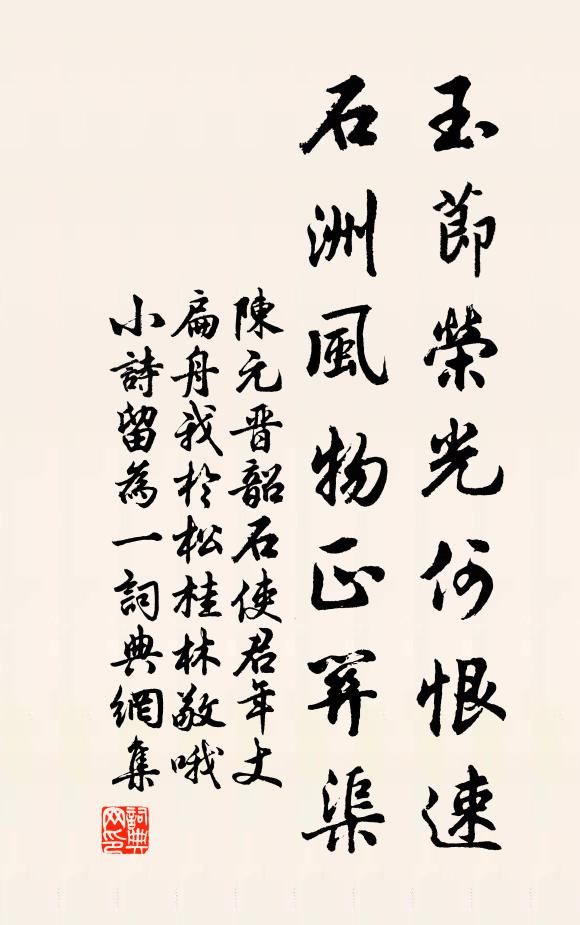 玉節榮光何恨速
石洲風物正羇渠
陳元晋韶石使君年丈
扁舟我於松桂林敬哦
小詩留為一詞典網集
詞典网印